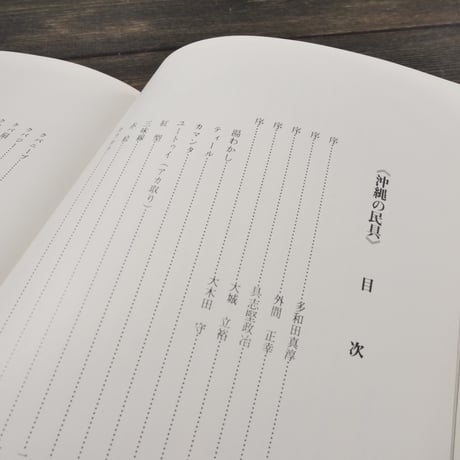 《沖縄の民具》 目次
序 多和田真淳
序 外間正幸
序 具志堅政冶
序 大城立裕
序 大木田守
湯わかし
ティール
カマンタ
ユートゥイ(アカ取り)
紅型
三味線